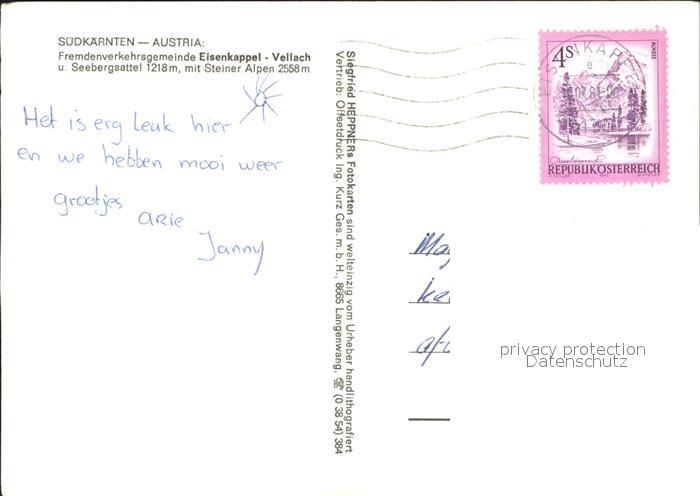 SÜDKÄRNTEN — AUSTRIA:
Fremdenverkehrsgemeinde Eisenkappel - Vellach
u. Seebergsattel 1218 m, mit Steiner Alpen 2558 m
Het is erg leuk hier
en we hebben mooi weer
groetjes
ARie
Janny
Siegfried HEPPNERs Fotokarten sind welteinzig vom Urheber handlithografiert
Vertrieb: Offsetdruck Ing. Kurz Ges. m. b. H., 8665 Langenwang, ☎ (0 38 54) 384
4S
ALMSEE
REPUBLIK ÖSTERREICH
EISENKAPPEL
privacy protection
Datenschutz